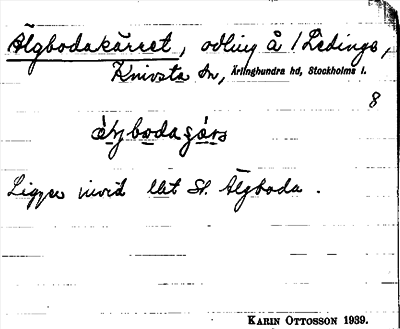 Älgbodakärret, odling å 1 Ledinge,
Knivsta sn, Ärlinghundra hd, Stockholms l.
8
Ligger invid llt St. Älgboda.
KARIN OTTOSSON 1939.